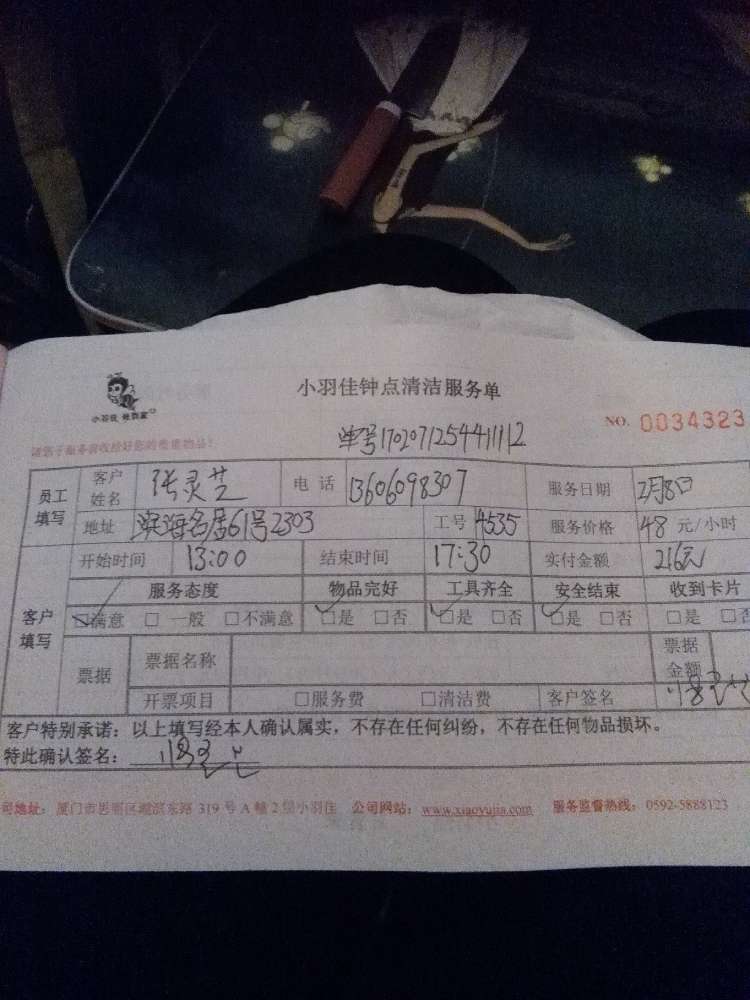 小羽佳钟点清洁服务单
小羽佳 壹到家
NO. 0034323
单号170207125441112
请您于服务前收拾好您的贵重物品！
员工填写 客户姓名 张灵芝 电话 13606098307 服务日期 2月8日
地址 滨海名居61号2303 工号 4535 服务价格 48 元/小时
客户填写 开始时间 13:00 结束时间 17:30 实付金额 216元
服务态度 物品完好 工具齐全 安全结束 收到卡片
☑满意 □ 一般 □不满意 ☑是 □否 ☑是 □否 ☑是 □否 □是 □否
票据 票据名称 票据金额
开票项目 □服务费 □清洁费 客户签名
客户特别承诺：以上填写经本人确认属实，不存在任何纠纷，不存在任何物品损坏。
特此确认签名：
司地址：厦门市思明区湖滨东路 319 号 A 幢 2 楼小羽佳 公司网站：www.xiaoyujia.com 服务监督热线：0592-5888123